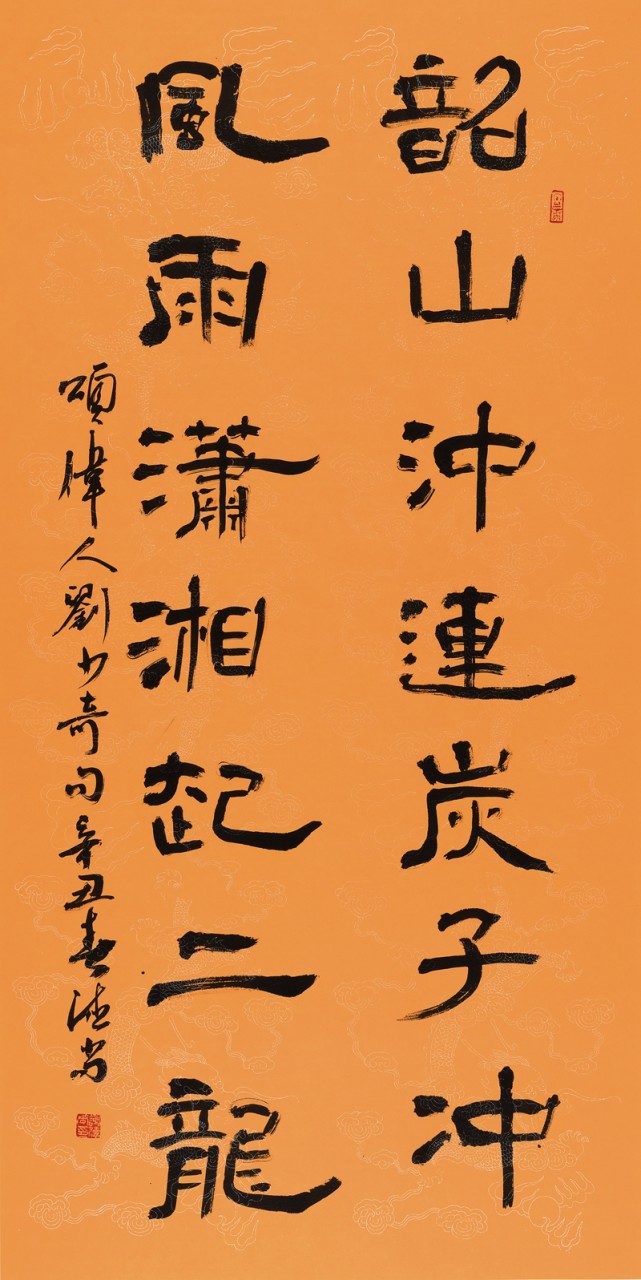 韶山沖連炭子冲
風雨瀟湘起二龍
頌偉人劉少奇句辛丑春